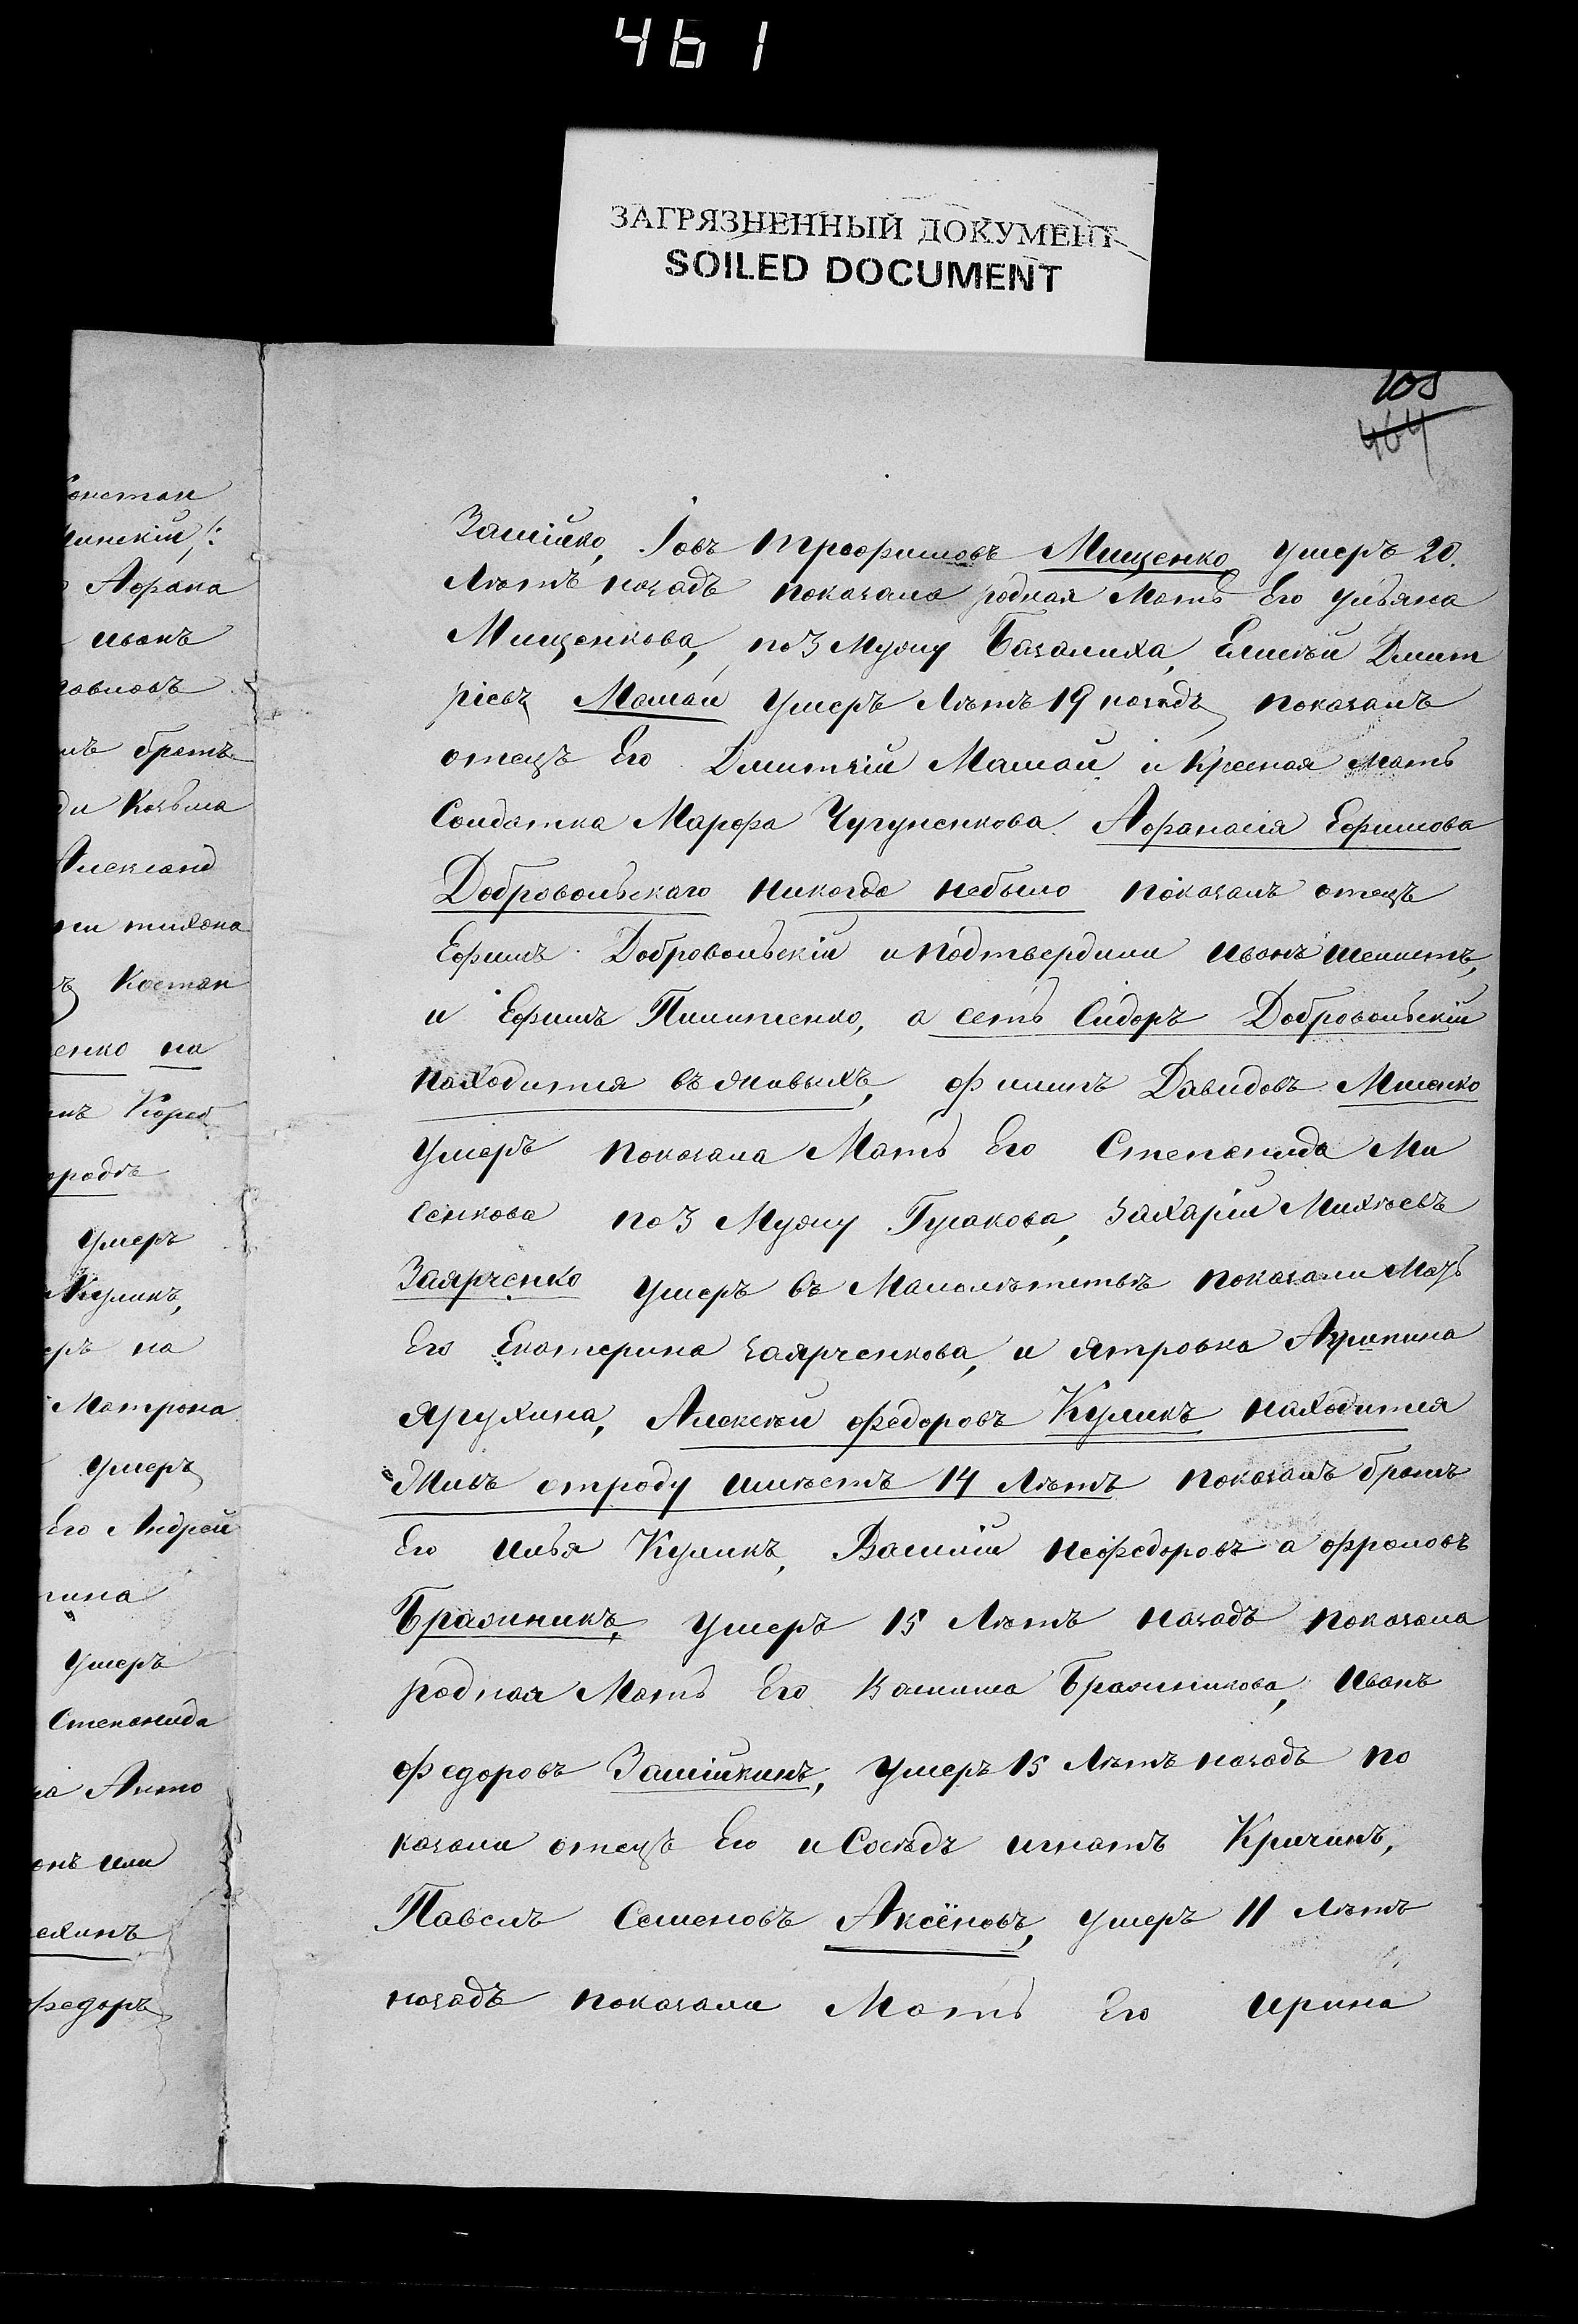 461
ЗАГРЯЗНЕННЫЙ ДОКУМЕНТ
SOILED DOCUMENT
105
464
Констан
Афана
иванъ
братъ
Козьма
Александ
тихона
Костан
енко на
умеръ
Куликъ,
еръ на
Матрона
умеръ
Его Андрей
умеръ
Степанида
Анто
федоръ
Зашійко, Iовъ трофимовъ Мищенко умеръ 20.
Лѣтъ назадъ показала родная Мать Его ульяна
Мищенкова, по 3 Мужу Базалиха, Елисѣй Дмит
ріевъ Мамай умеръ Лѣтъ 19 назадъ показалъ
отецъ Его Дмитрій Мамай и Кресная мать
Солдатка Марфа Чугуненкова Афанасія Ефимова
Добровольскаго никогда небыло показалъ отецъ
Ефимъ Добровольскій и подтвердили иванъ шелестъ,
и Ефимъ Пилипенко, а есть Сидоръ Добровольскій
находится въ живыхъ, филипъ Давидовъ Мисенко
умеръ показала Мать Его Степанида Ми
сенкова по 3 Мужу Гусакова, захарій Михѣевъ
Заярченко умеръ въ Малолѣтствѣ показали Мать
Его Екатерина заярченкова, и ятровка Агрипина
яружина, Алексѣй федоровъ Куликъ находится
живъ отроду имѣетъ 14 Лѣтъ показалъ братъ
Его илья Куликъ, Василій нефедоровъ а фроловъ
Бражникъ, умеръ 15 Лѣтъ назадъ показала
родная Мать Его Василиса Бражникова, иванъ
федоровъ Зашійкинъ, умеръ 15 Лѣтъ назадъ по
казали отецъ Его и Сосѣдъ игнатъ Кричинъ,
Павелъ Семеновъ Аксёновъ, умеръ 11 Лѣтъ
назадъ показали Мать Его ирина